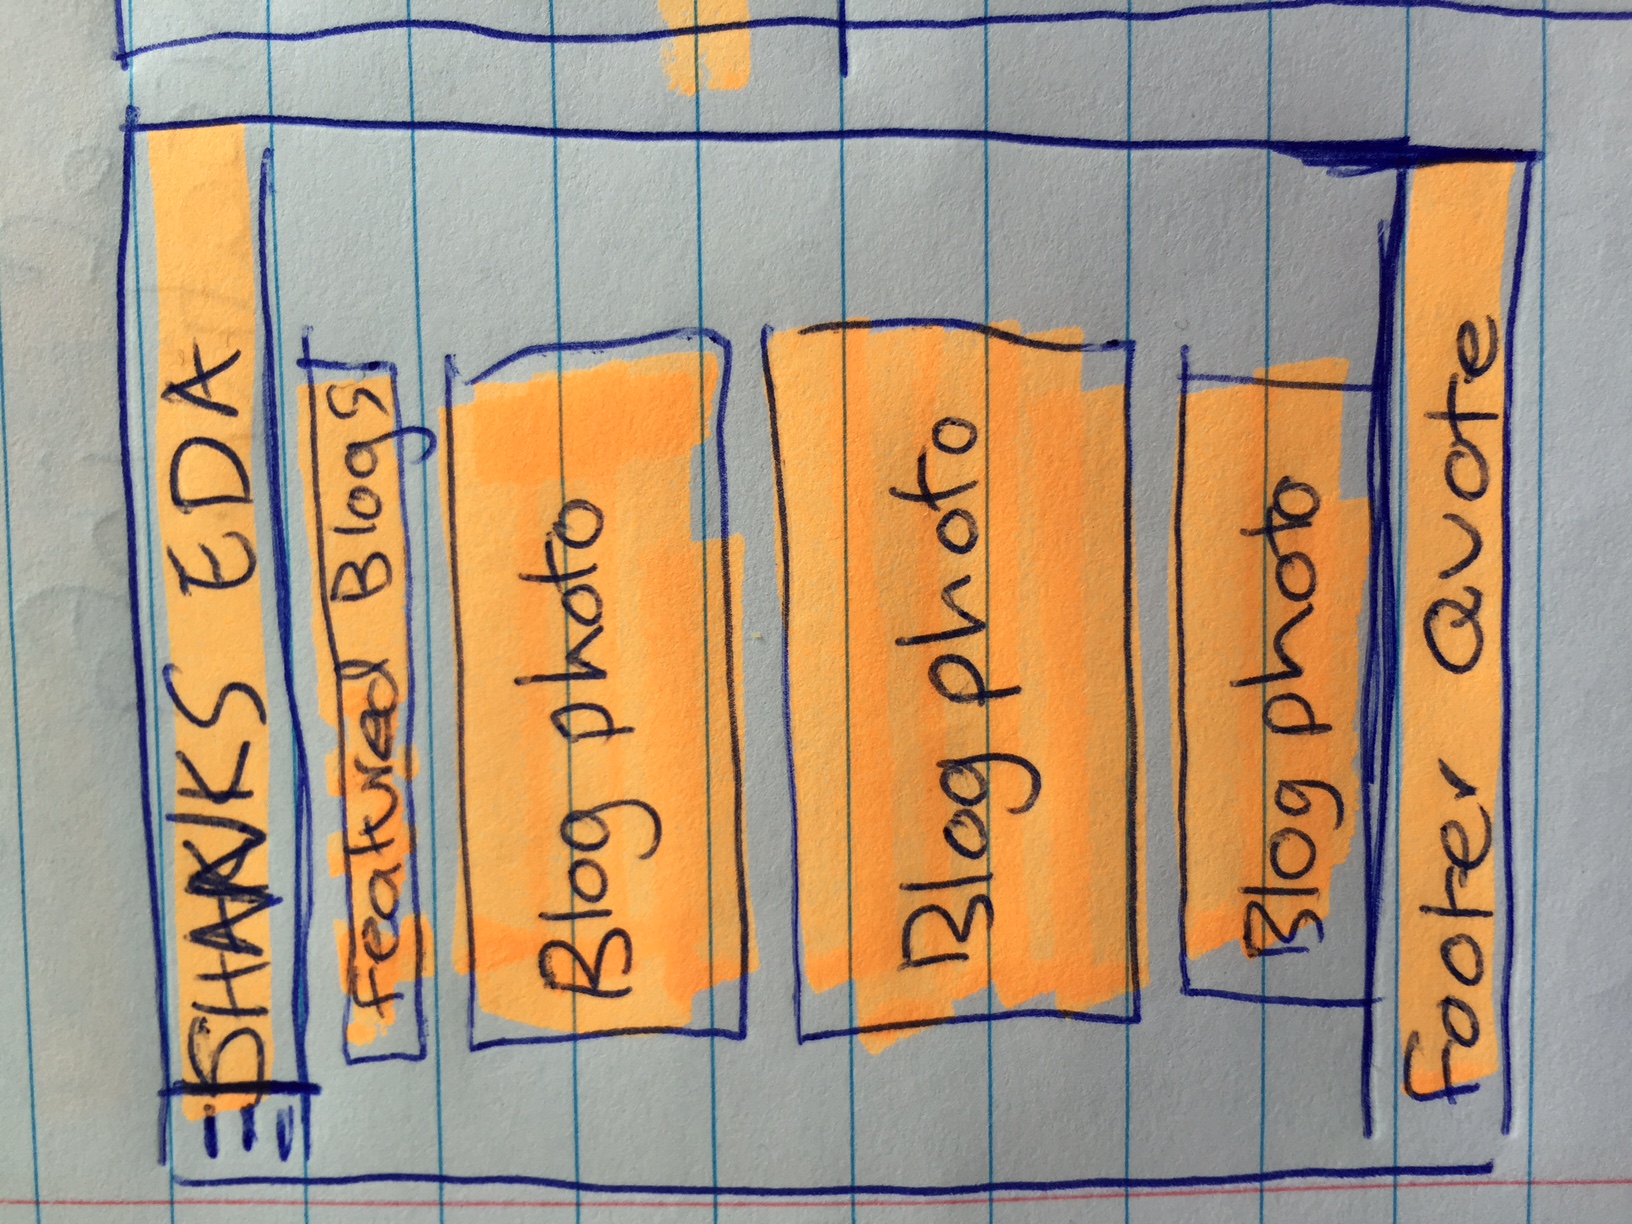 SHANKS EDA
Featured Blogs
Blog photo
Blog photo
Blog photo
Footer Quote